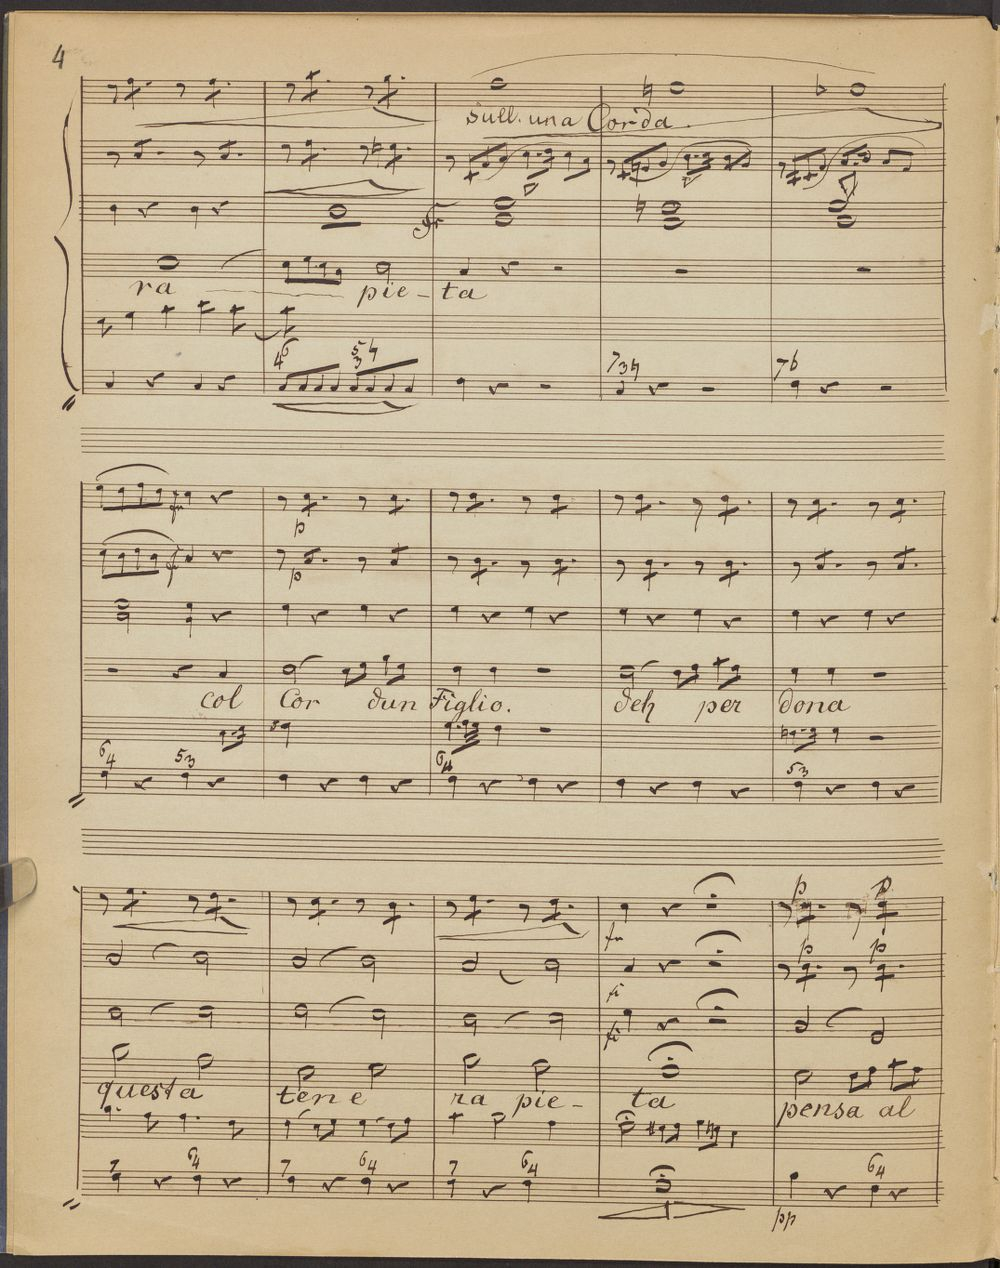 4
Sull. una Corda.
ra pie - ta
6 4 5 3 ♮
7 3 4 7 6
p
p
col Cor dun Figlio. deh per dona
6 4 5 3 6 4 5 3
p p
p p
questa tene ra pie - ta pensa al
7 6 4 7 6 4 7 6 4 6 4
pp